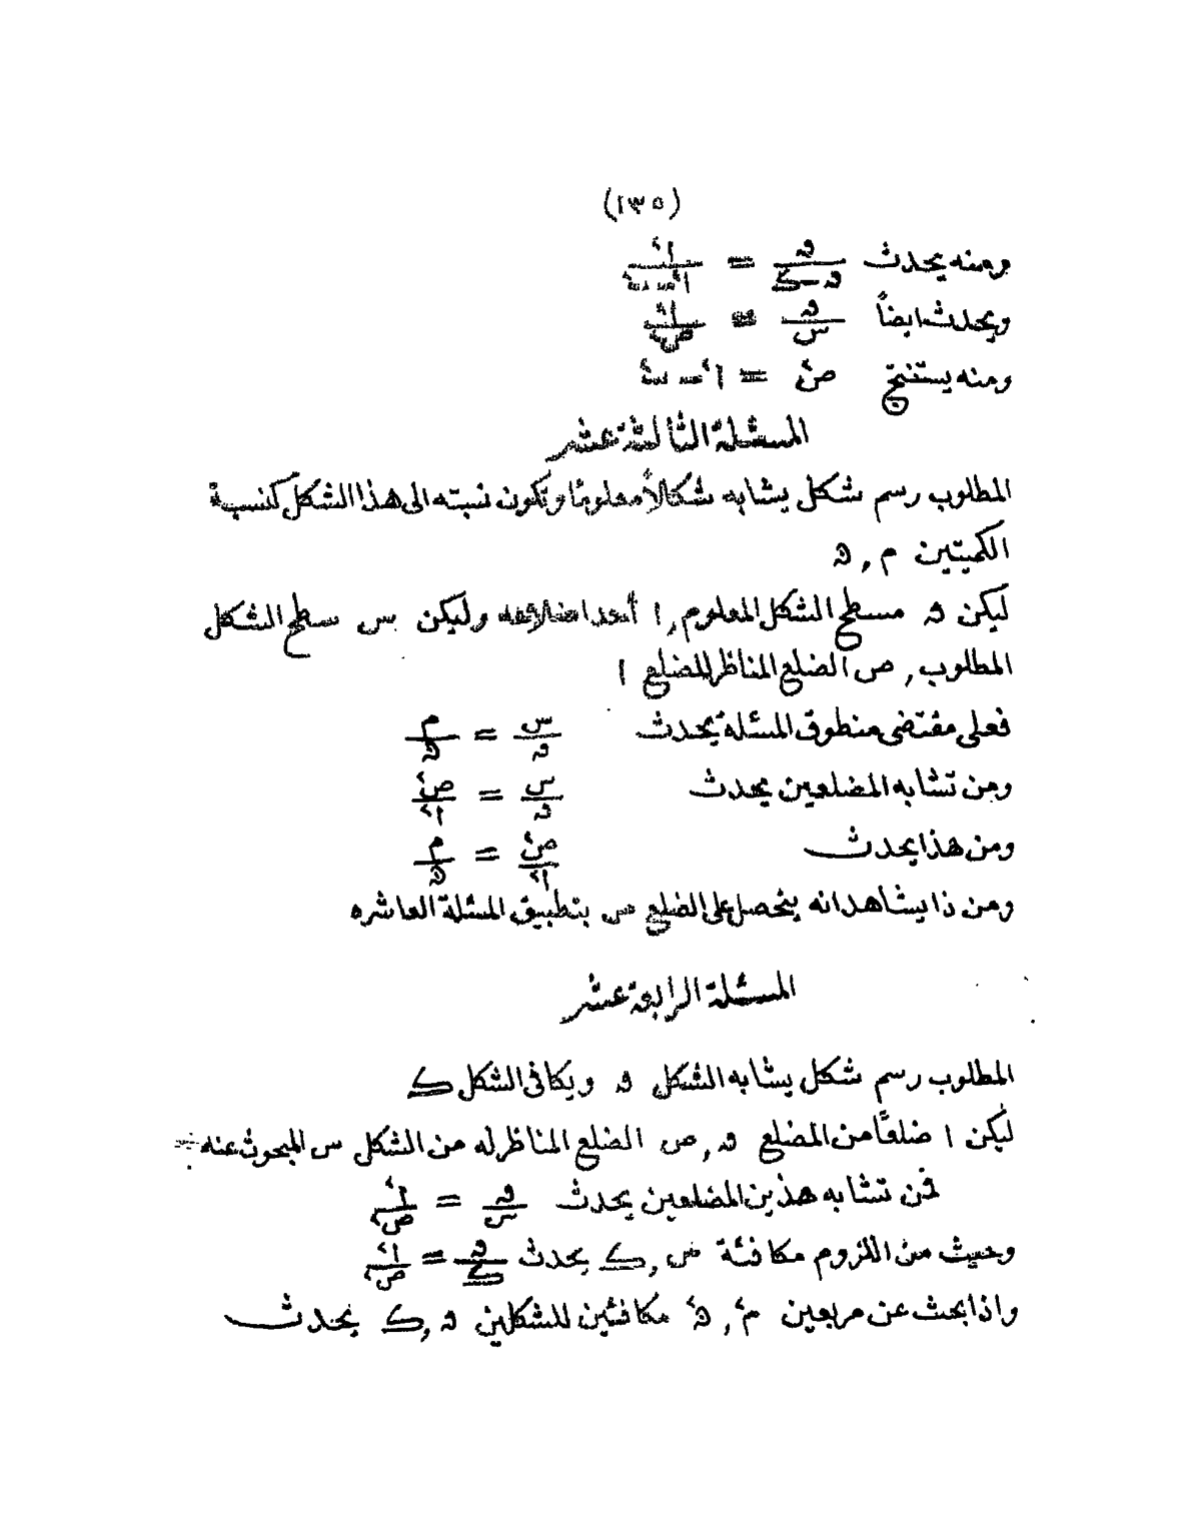 (١٣٥)
ومنه يحدث ق/(ق-ك) = ا٢/(ا٢-ب٢)
ويحدث ايضاً ق/س = ا٢/ص٢
ومنه يستنتج ص٢ = ا٢-ب٢
المسئلة الثالثة عشر
المطلوب رسم شكل يشابه شكلاً معلوماً وتكون نسبته الى هذا الشكل كنسبة
الكميتين م , ن
ليكن ق مسطح الشكل المعلوم , ا أحد اضلاعه وليكن س سطح الشكل
المطلوب , ص الضلع المناظر للضلع ا
فعلى مقتضى منطوق المسئلة يحدث س/ق = م/ن
ومن تشابه المضلعين يحدث س/ق = ص٢/ا٢
ومن هذا يحدث ص٢/ا٢ = م/ن
ومن ذا يشاهد انه يتحصل على الضلع ص بتطبيق المسئلة العاشره
المسئلة الرابعة عشر
المطلوب رسم شكل يشابه الشكل ق ويكافى الشكل ك
ليكن ا ضلعاً من المضلع ق , ص الضلع المناظر له من الشكل س المبحوث عنه
فمن تشابه هذين المضلعين يحدث ق/س = ا٢/ص٢
وحيث من اللزوم مكافئة س , ك يحدث ق/ك = ا٢/ص٢
واذا بحث عن مربعين م٢ , ن٢ مكافئين للشكلين ق , ك يحدث